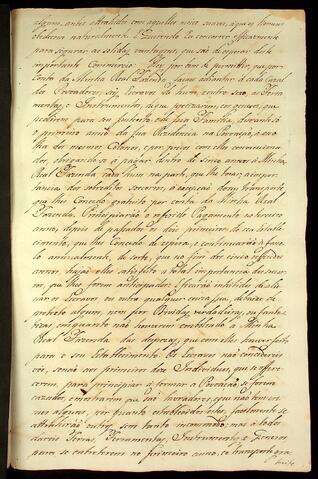 alguns, antes attrahidos com aquelles meios suaves, a que os homens
obedecem naturalmente: E querendo Eu concorrer efficazmente
para segurar as solidas vantagens, que são de esperar deste
importante Commercio: Hei por bem de permittir, que por
Conta da Minha Real Fazenda, façais adiantar a cada Cazal
dos Povoadores, seis Escravos de hum, e outro sexo, as Ferra
mentas, e Instrumentos, de que precizarem, ou generos, que
pedirem para seu sustento e da sua Familia, durante só
o primeiro anno da sua Rezidencia na Povoação,
lha dos mesmos Colonos, e por preços com elles convenciona-
dos, obrigando-se a pagar dentro de sinco annos á Minha
Real Fazenda cada hum na parte, que lhe tocar, a impor-
tancia dos sobreditos socorros, á excepção do seu transporte,
que lhes Concedo gratuito por conta da Minha Real
Fazenda. Principiarão o referido Pagamento no terceiro
anno, depois de passados os dois primeiros do seu estabele-
cimento, que lhes Concedo de espera, e continuarão a faze-
lo annualmente, de sorte, que no fim dos cinco referidos
annos, hajão elles satisfeito a total importancia dos socor-
ros, que lhes forem anticipados: E ficarão inhibidos de alie-
nar os Escravos ou outra qualquer couza sua, debaixo de
pretexto algum, nem por Dividas verdadeiras, ou fantas-
ticas, enquanto não houverem embolçado a Minha
Real Fazenda das despezas, que com elles houver feito
para o seu estabelecimento. Os Escravos não concedereis
vós, senão aos primeiros dez Individuos, que se offere-
cerem, para principiar a formar a Povoação, se forem
cazados, e mostrarem que são lavradores, e que não tem em
nos alguns, por quanto estabelecidos estes, facilmente se
attrahirão outros sem tanto incommodo; mas a todos
dareis Terras, Ferramentas, Instrumentos, e Generos
para se entreterem no primeiro anno, e o transporte gra
tuito